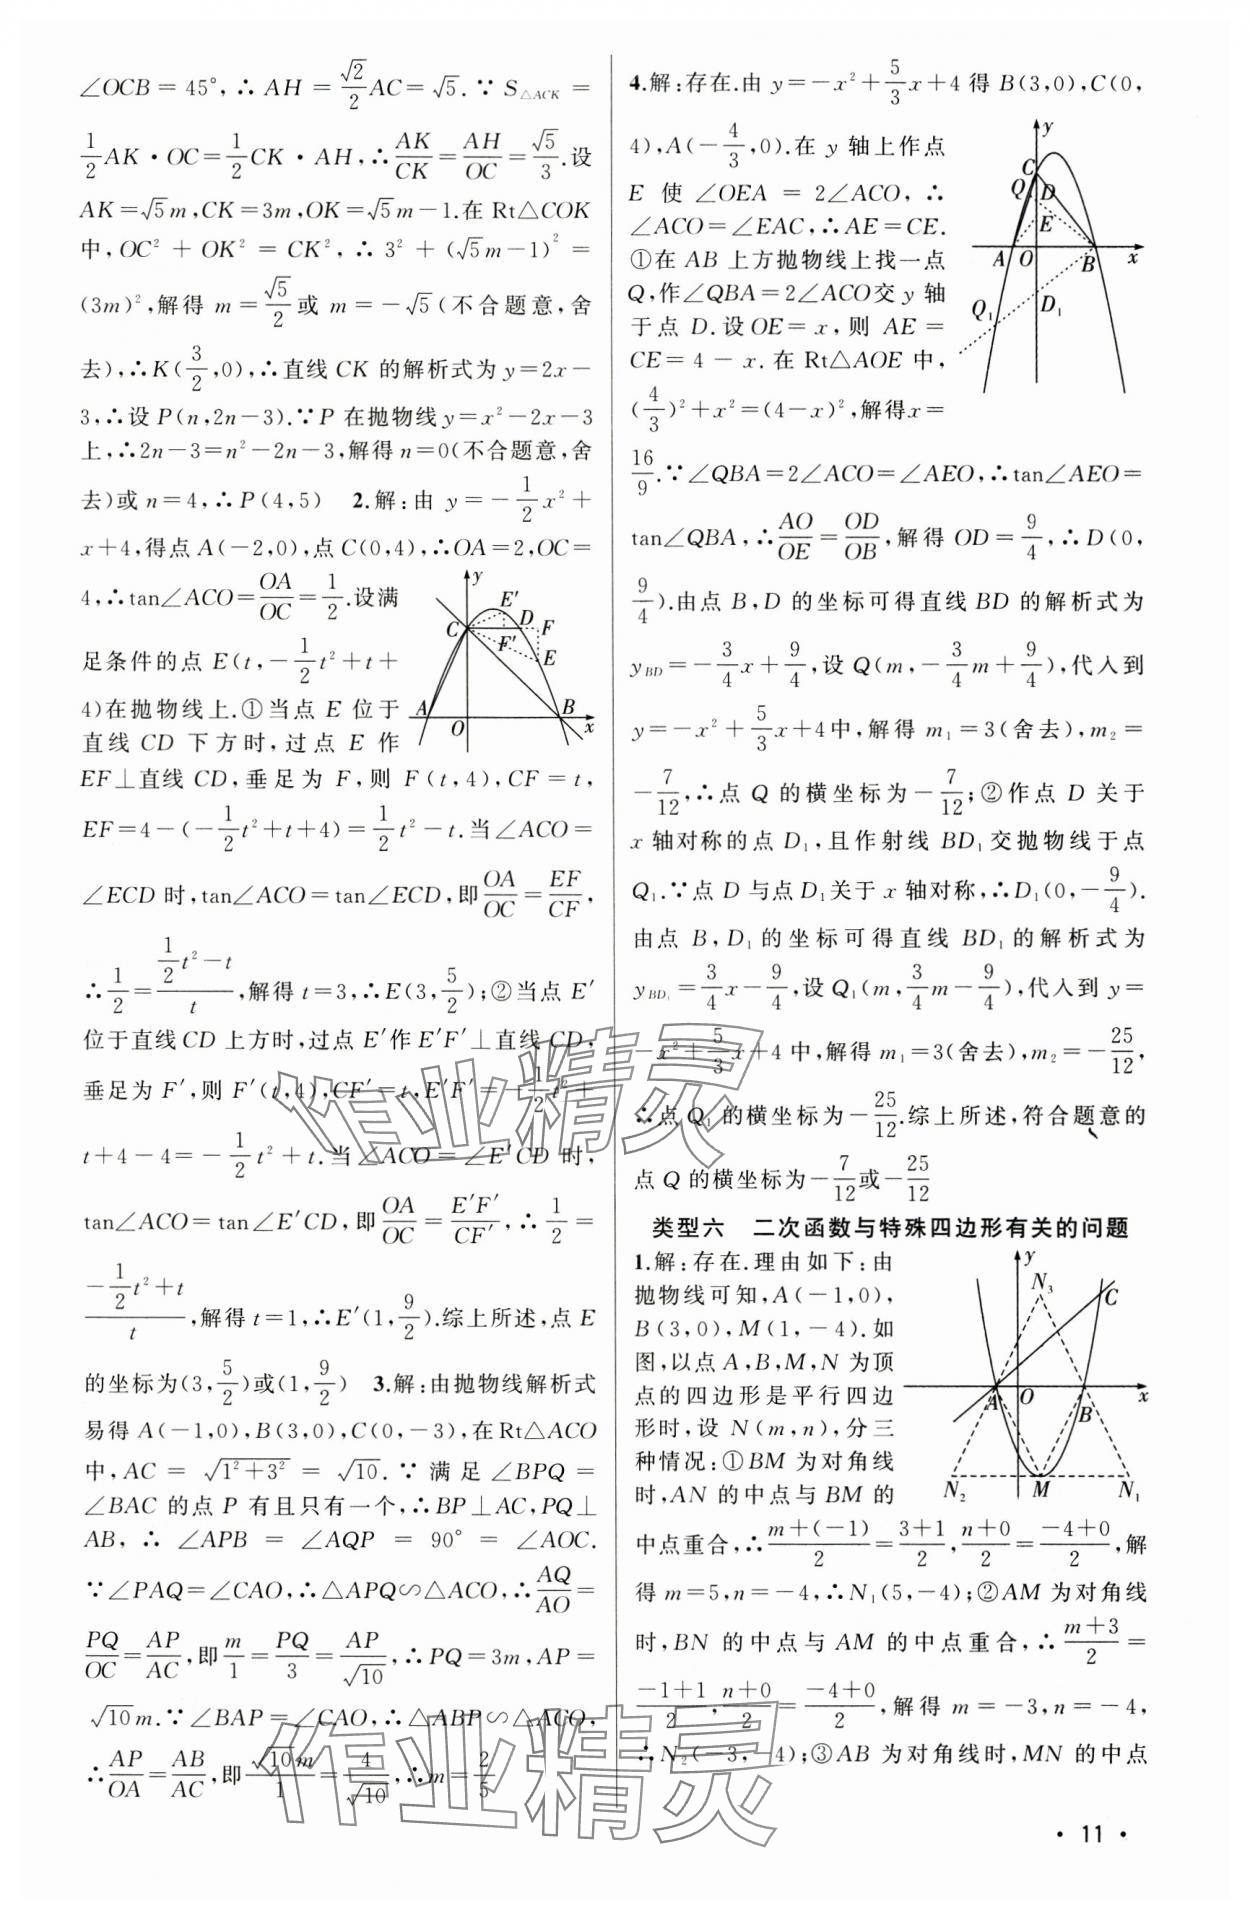 ∠OCB=45°,∴AH=\frac{\sqrt{2}}{2}AC=\sqrt{5}.∵S_{△ACK}=
\frac{1}{2}AK·OC=\frac{1}{2}CK·AH,∴\frac{AK}{CK}=\frac{AH}{OC}=\frac{\sqrt{5}}{3}.设
AK=\sqrt{5}m,CK=3m,OK=\sqrt{5}m-1.在Rt△COK
中,OC²+OK²=CK²,∴3²+(\sqrt{5}m-1)²=
(3m)²,解得m=\frac{\sqrt{5}}{2}或m=-\sqrt{5}(不合题意,舍
去),∴K(\frac{3}{2},0),∴直线CK的解析式为y=2x-
3,∴设P(n,2n-3).∵P在抛物线y=x²-2x-3
上,∴2n-3=n²-2n-3,解得n=0(不合题意,舍
去)或n=4,∴P(4,5) 2.解:由y=-\frac{1}{2}x²+
x+4,得点A(-2,0),点C(0,4),∴OA=2,OC=
4,∴tan∠ACO=\frac{OA}{OC}=\frac{1}{2}.设满
足条件的点E(t,-\frac{1}{2}t²+t+
4)在抛物线上.①当点E位于
直线CD下方时,过点E作
y
E′
C
D
F
F′
E
A
O
B
x
EF⊥直线CD,垂足为F,则F(t,4),CF=t,
EF=4-(-\frac{1}{2}t²+t+4)=\frac{1}{2}t²-t.当∠ACO=
∠ECD时,tan∠ACO=tan∠ECD,即\frac{OA}{OC}=\frac{EF}{CF},
∴\frac{1}{2}=\frac{\frac{1}{2}t²-t}{t},解得t=3,∴E(3,\frac{5}{2});②当点E′
位于直线CD上方时,过点E′作E′F′⊥直线CD,
垂足为F′,则F′(t,4),CF′=t,E′F′=-\frac{1}{2}t²+
t+4-4=-\frac{1}{2}t²+t.当∠ACO=∠E′CD时,
tan∠ACO=tan∠E′CD,即\frac{OA}{OC}=\frac{E′F′}{CF′},∴\frac{1}{2}=
\frac{-\frac{1}{2}t²+t}{t},解得t=1,∴E′(1,\frac{9}{2}).综上所述,点E
的坐标为(3,\frac{5}{2})或(1,\frac{9}{2}) 3.解:由抛物线解析式
易得A(-1,0),B(3,0),C(0,-3),在Rt△ACO
中,AC=\sqrt{1²+3²}=\sqrt{10}.∵满足∠BPQ=
∠BAC的点P有且只有一个,∴BP⊥AC,PQ⊥
AB,∴∠APB=∠AQP=90°=∠AOC.
∵∠PAQ=∠CAO,∴△APQ∽△ACO,∴\frac{AQ}{AO}=
\frac{PQ}{OC}=\frac{AP}{AC},即\frac{m}{1}=\frac{PQ}{3}=\frac{AP}{\sqrt{10}},∴PQ=3m,AP=
\sqrt{10}m.∵∠BAP=∠CAO,∴△ABP∽△ACO,
∴\frac{AP}{OA}=\frac{AB}{AC},即\frac{\sqrt{10}m}{1}=\frac{4}{\sqrt{10}},∴m=\frac{2}{5}
4.解:存在.由y=-x²+\frac{5}{3}x+4得B(3,0),C(0,
4),A(-\frac{4}{3},0).在y轴上作点
E使∠OEA=2∠ACO,∴
∠ACO=∠EAC,∴AE=CE.
①在AB上方抛物线上找一点
Q,作∠QBA=2∠ACO交y轴
于点D.设OE=x,则AE=
CE=4-x.在Rt△AOE中,
(\frac{4}{3})²+x²=(4-x)²,解得x=
y
C
Q
D
E
A
O
B
x
Q₁
D₁
\frac{16}{9}.∵∠QBA=2∠ACO=∠AEO,∴tan∠AEO=
tan∠QBA,∴\frac{AO}{OE}=\frac{OD}{OB},解得OD=\frac{9}{4},∴D(0,
\frac{9}{4}).由点B,D的坐标可得直线BD的解析式为
y_{BD}=-\frac{3}{4}x+\frac{9}{4},设Q(m,-\frac{3}{4}m+\frac{9}{4}),代入到
y=-x²+\frac{5}{3}x+4中,解得m₁=3(舍去),m₂=
-\frac{7}{12},∴点Q的横坐标为-\frac{7}{12};②作点D关于
x轴对称的点D₁,且作射线BD₁交抛物线于点
Q₁.∵点D与点D₁关于x轴对称,∴D₁(0,-\frac{9}{4}).
由点B,D₁的坐标可得直线BD₁的解析式为
y_{BD₁}=\frac{3}{4}x-\frac{9}{4},设Q₁(m,\frac{3}{4}m-\frac{9}{4}),代入到y=
-x²+\frac{5}{3}x+4中,解得m₁=3(舍去),m₂=-\frac{25}{12},
∴点Q₁的横坐标为-\frac{25}{12}.综上所述,符合题意的
点Q的横坐标为-\frac{7}{12}或-\frac{25}{12}
类型六 二次函数与特殊四边形有关的问题
1.解:存在.理由如下:由
抛物线可知,A(-1,0),
B(3,0),M(1,-4).如
图,以点A,B,M,N为顶
点的四边形是平行四边
形时,设N(m,n),分三
种情况:①BM为对角线
时,AN的中点与BM的
y
N₃
C
A
O
B
x
N₂
M
N₁
中点重合,∴\frac{m+(-1)}{2}=\frac{3+1}{2},\frac{n+0}{2}=\frac{-4+0}{2},解
得m=5,n=-4,∴N₁(5,-4);②AM为对角线
时,BN的中点与AM的中点重合,∴\frac{m+3}{2}=
\frac{-1+1}{2},\frac{n+0}{2}=\frac{-4+0}{2},解得m=-3,n=-4,
∴N₂(-3,-4);③AB为对角线时,MN的中点
作业精灵
作业精灵
·11·